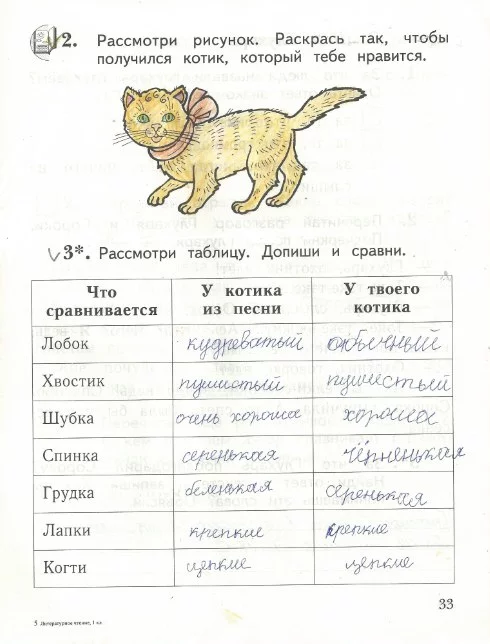 2. Рассмотри рисунок. Раскрась так, чтобы
получился котик, который тебе нравится.
3*. Рассмотри таблицу. Допиши и сравни.
Что сравнивается У котика из песни У твоего котика
Лобок кудреватый обычный
Хвостик пушистый пушистый
Шубка очень хороша хороша
Спинка серенькая чёрненькая
Грудка беленькая серенькая
Лапки крепкие крепкие
Когти цепкие цепкие
33
5 Литературное чтение, 1 кл